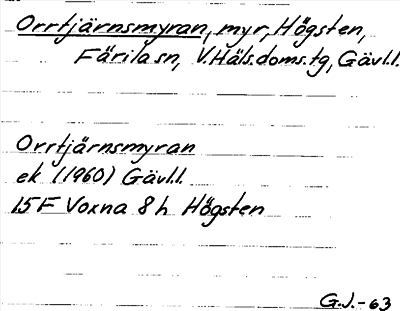 Orrtjärnsmyran, myr, Högsten,
Färila sn, V. Häls. doms. tg, Gävl.l.
Orrtjärnsmyran
ek (1960) Gävl.l.
15F Voxna 8h Högsten
G.J.-63